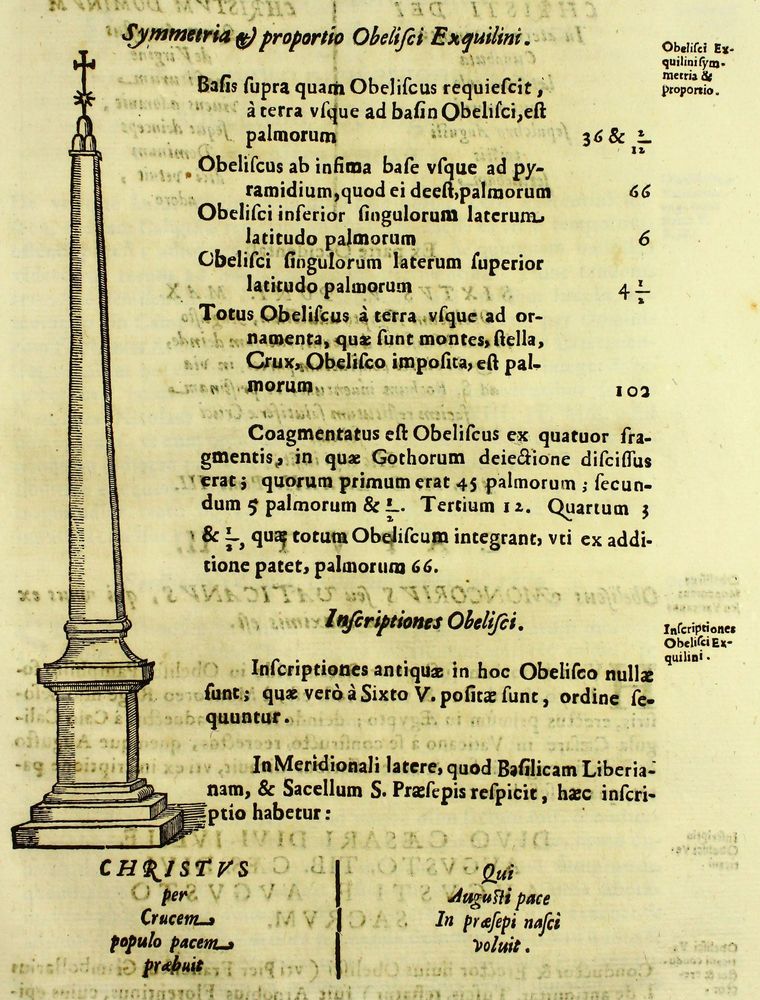 Symmetria & proportio Obelisci Exquilini.
Obelisci Ex-
quilini sym-
metria &
proportio.
Basis supra quam Obeliscus requiescit,
à terra vsque ad basin Obelisci, est
palmorum 36 & 2/12
Obeliscus ab infima base vsque ad py-
ramidium, quod ei deest, palmorum 66
Obelisci inferior singulorum laterum
latitudo palmorum 6
Obelisci singulorum laterum superior
latitudo palmorum 4 1/2
Totus Obeliscus à terra vsque ad or-
namenta, quæ sunt montes, stella,
Crux, Obelisco imposita, est pal-
morum 102
Coagmentatus est Obeliscus ex quatuor fra-
gmentis, in quæ Gothorum deiectione discissus
erat; quorum primum erat 45 palmorum; secun-
dum 5 palmorum & 1/2. Tertium 12. Quartum 3
& 1/2, quæ totum Obeliscum integrant, vti ex addi-
tione patet, palmorum 66.
Inscriptiones Obelisci.
Inscriptiones
Obelisci Ex-
quilini.
Inscriptiones antiquæ in hoc Obelisco nullæ
sunt; quæ verò à Sixto V. positæ sunt, ordine se-
quuntur.
In Meridionali latere, quod Basilicam Liberia-
nam, & Sacellum S. Præsepis respicit, hæc inscri-
ptio habetur:
CHRISTVS
per
Crucem
populo pacem
præbuit
Qui
Augusti pace
In præsepi nasci
voluit.